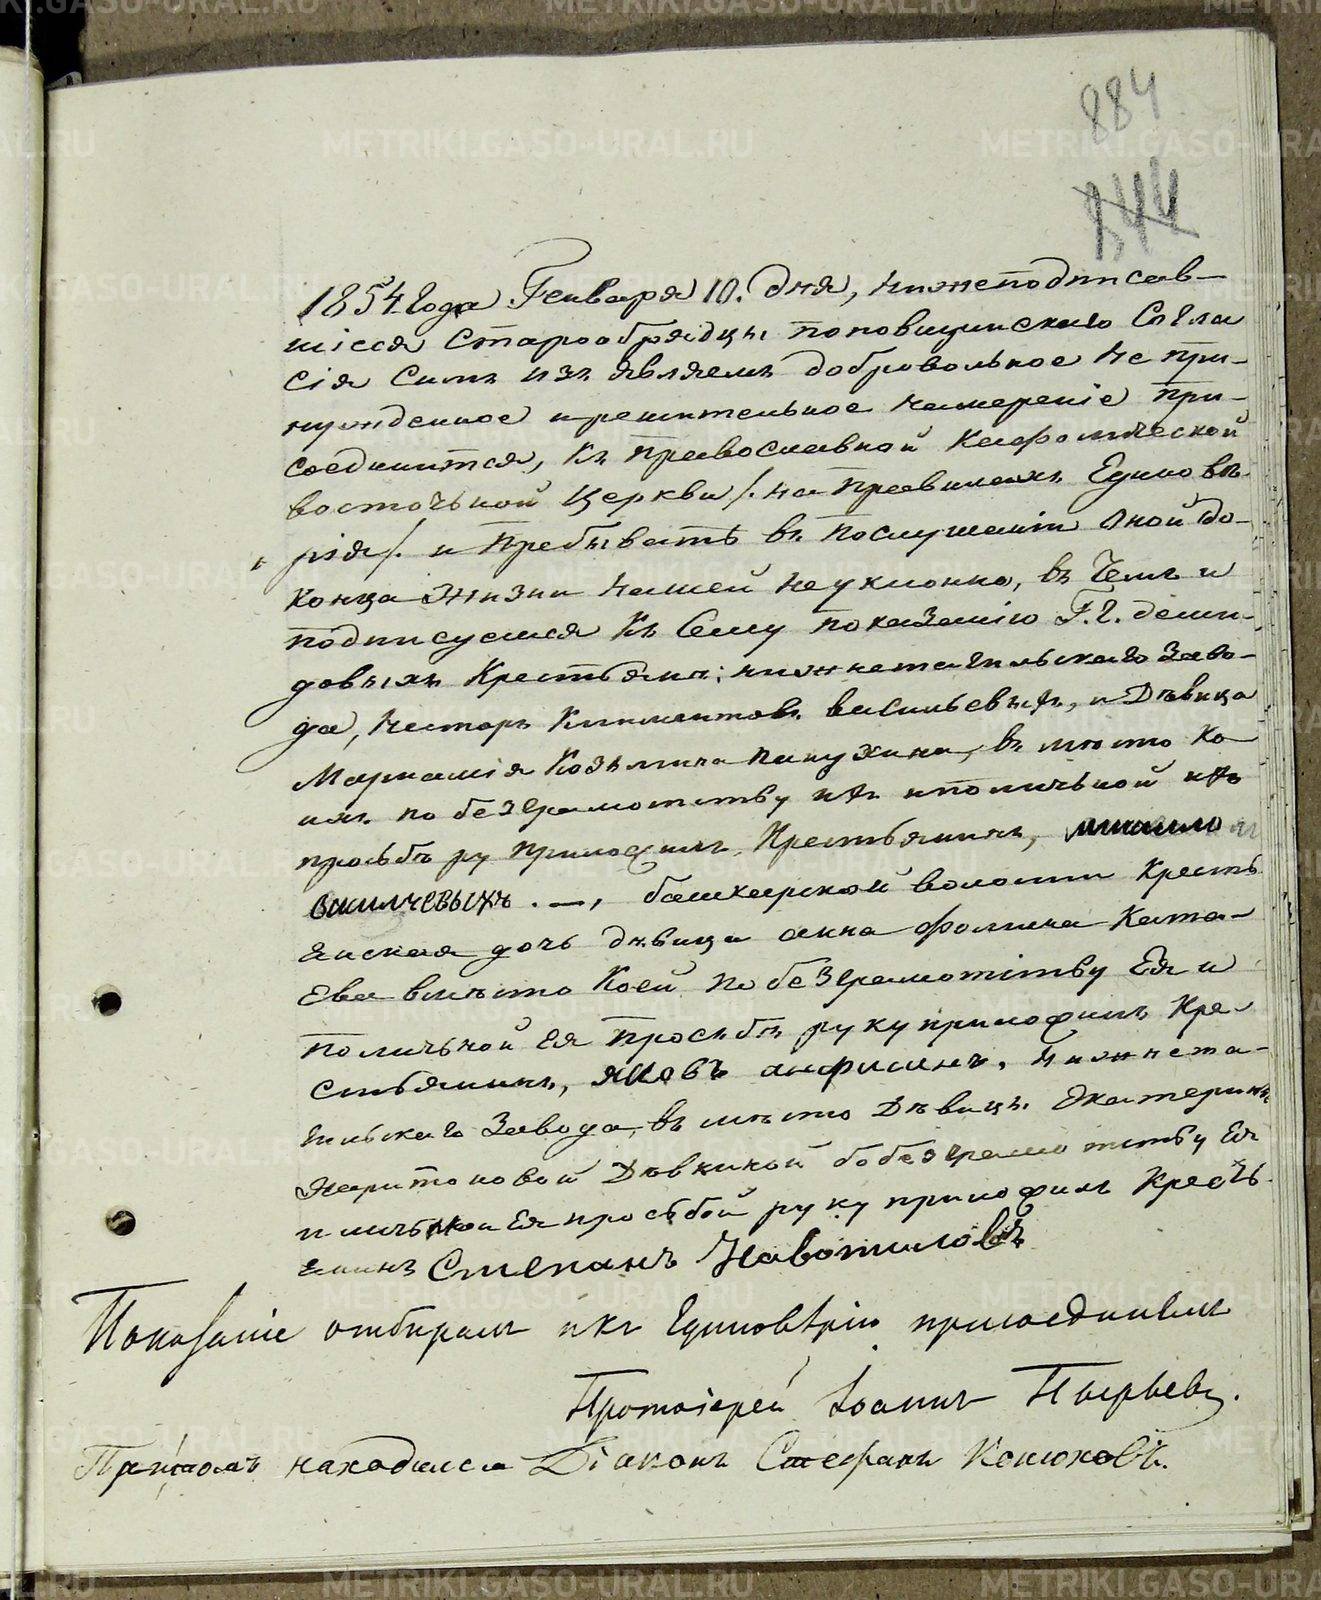 884
844
1854 года Генваря 10. дня, нижеподписав-
шіеся Старообрядцы поповщинскаго Согла
сія Симъ изъявляемъ добровольное не при-
нужденное и решительное намереніе при-
соединится, къ православной Кафолической
восточьной Церкви /. на правилахъ Единовѣ
рія /. и пребывать въ послушаніи оной до-
конца жизни нашей неуклонно, въ Чемъ и
подписуемся Къ Сему показанію Г.г. деми-
довыхъ Крестьянъ: нижнетагильскаго Заво-
да, Нестеръ Климантовъ васильевыхъ, и Дѣвица
Маркамія Козьмина панухина, въ мѣсто Ко
ихъ по безграмотству ихъ иполичьной ихъ
просьбѣ ру приложилъ Крестьянинъ, михаило
василчевыхъ . —, башкарской волости Кресть
янская дочь дѣвица анна фомина Ката-
ева вмѣсто Коей по безграмотству Ея и
поличьной Ея просьбѣ руку приложилъ Кре-
стьянинъ, яковъ анфисинъ. Нижнета-
гильскаго Завода, въ мѣсто Дѣвицы Екатерины
Харитоновой Дѣвкиной бобезграмотству Ея
и личьной Ея просьбой руку приложилъ Кресть
янинъ Степанъ Новотиловъ
Показаніе отбиралъ и къ Единовѣрію присоединилъ
Протоіерей Іоаннъ Пырьевъ.
При томъ находился Діаконъ Стефанъ Конюховъ.
METRIKI.GASO-URAL.RU